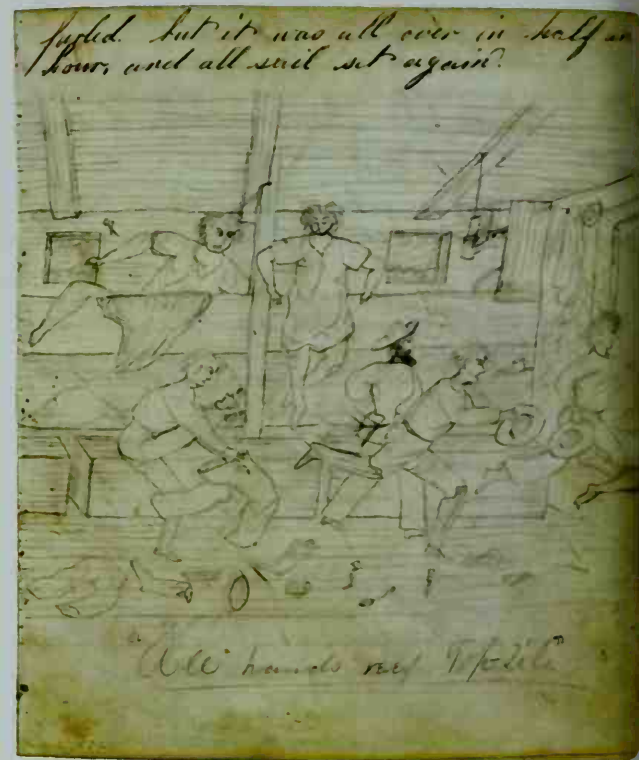 furled but it was all over in half an
hour, and all sail set again.
"All hands reef Topsails"